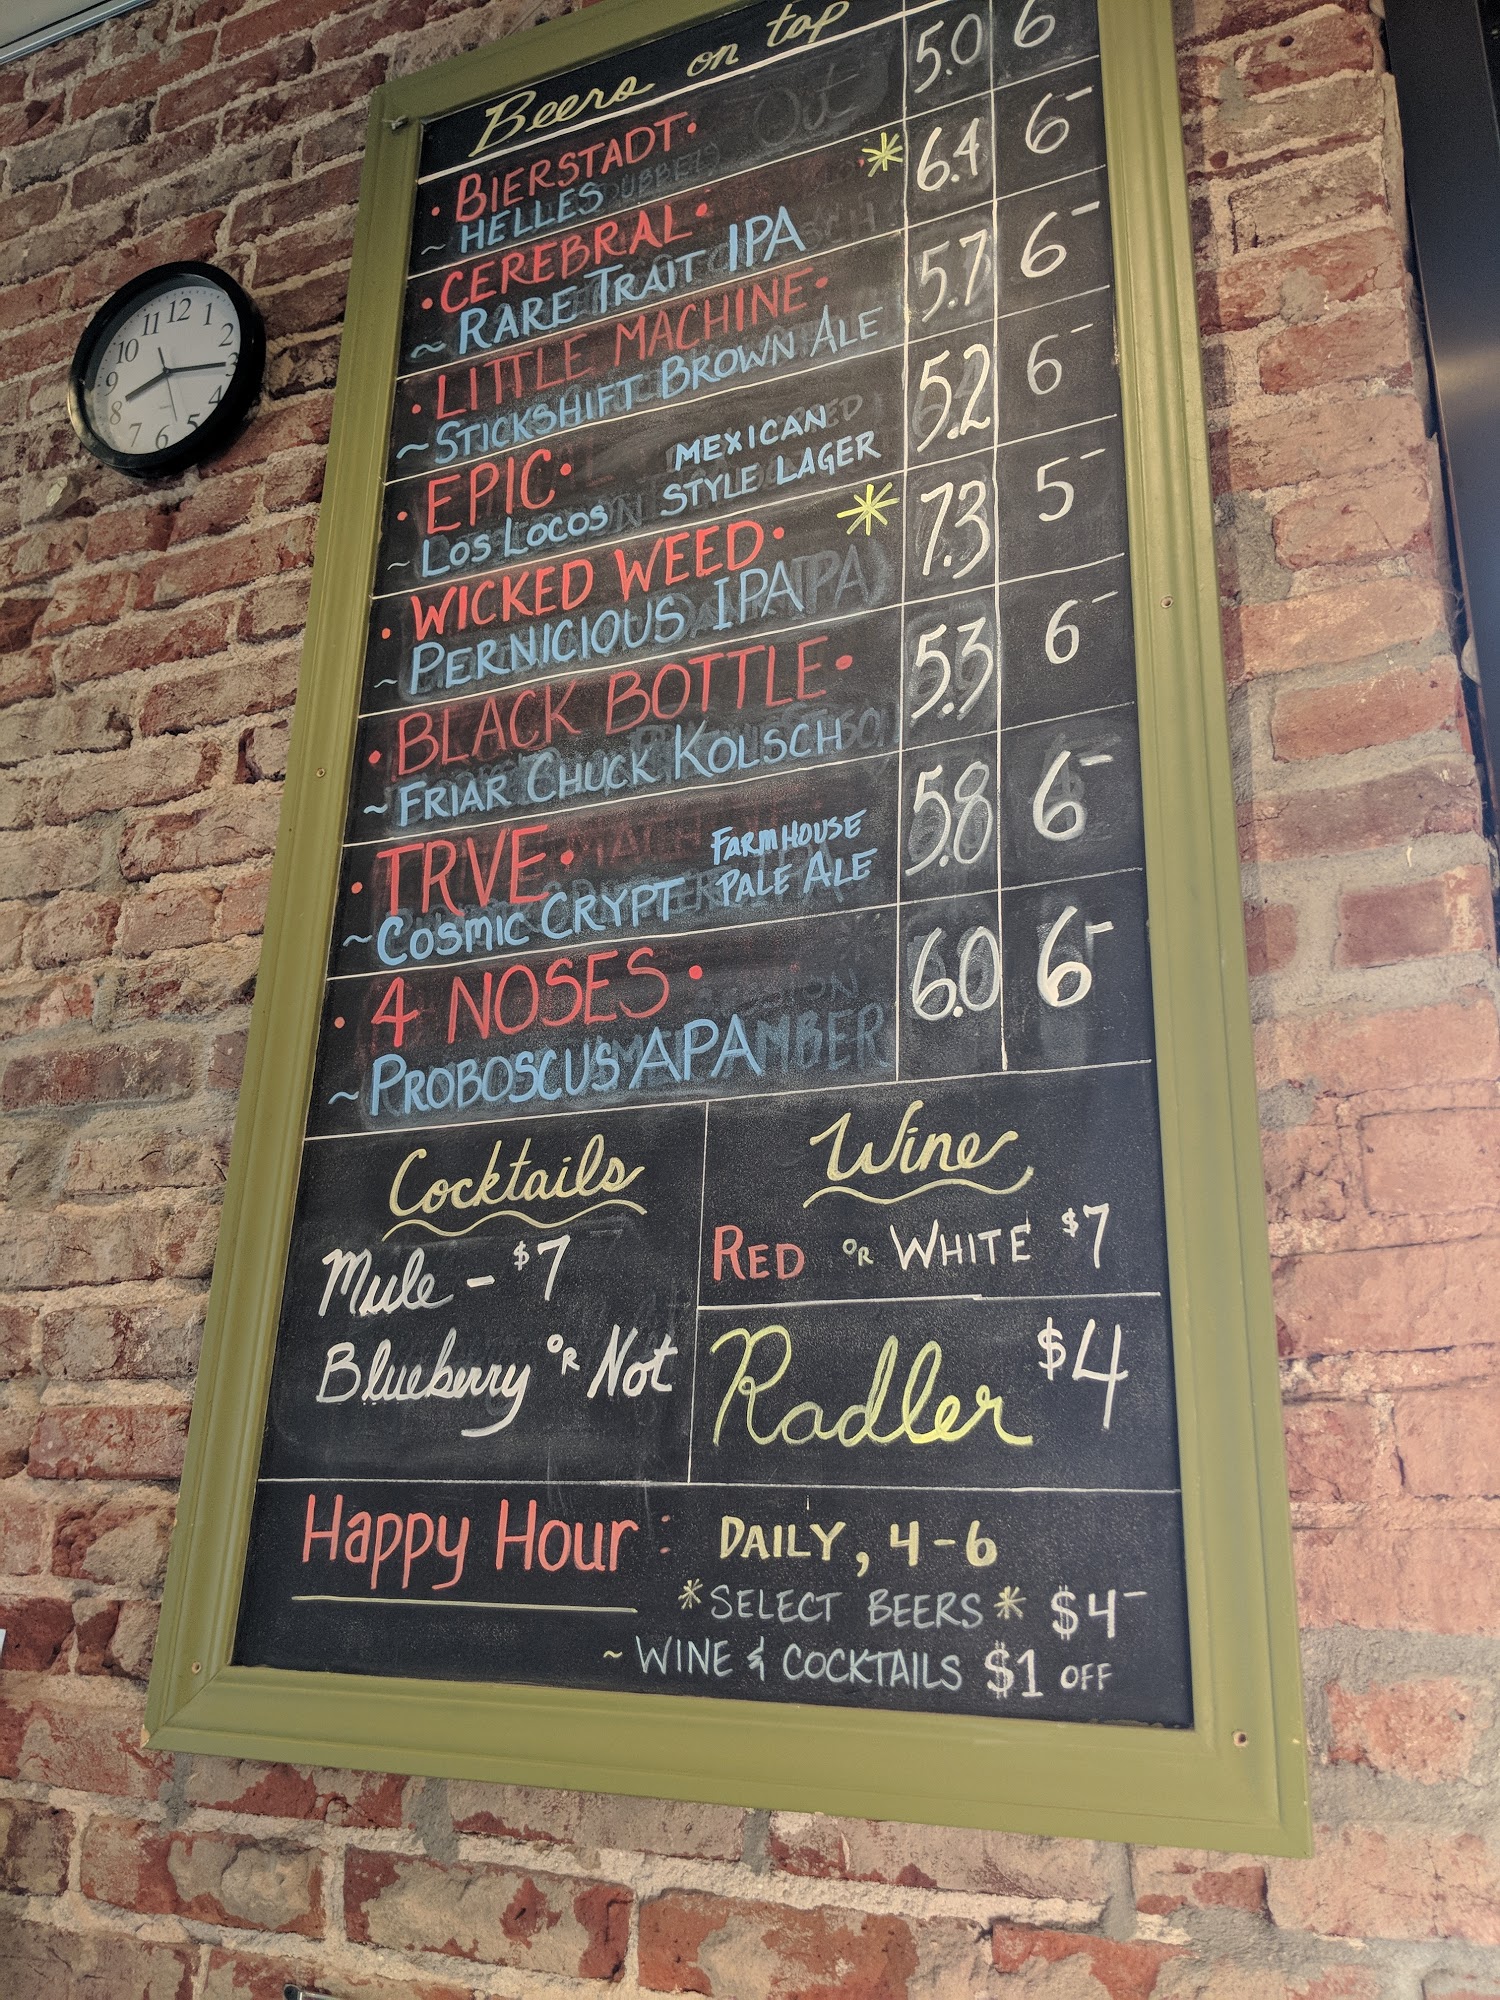 Beers on tap
BIERSTADT 5.0 6-
~ HELLES
CEREBRAL * 6.4 6-
~ RARE TRAIT IPA
LITTLE MACHINE 5.7 6-
~ STICKSHIFT BROWN ALE
EPIC 5.2 6-
~ LOS LOCOS MEXICAN STYLE LAGER
WICKED WEED * 7.3 5-
~ PERNICIOUS IPA
BLACK BOTTLE 5.3 6-
~ FRIAR CHUCK KOLSCH
TRVE 5.8 6-
~ COSMIC CRYPT FARMHOUSE PALE ALE
4 NOSES 6.0 6-
~ PROBOSCUS APA
Cocktails
Mule - $7
Blueberry OR Not
Wine
RED OR WHITE $7
Radler $4
Happy Hour: DAILY, 4-6
*SELECT BEERS* $4-
~ WINE & COCKTAILS $1 OFF
12
1
2
3
4
5
6
7
8
9
10
11